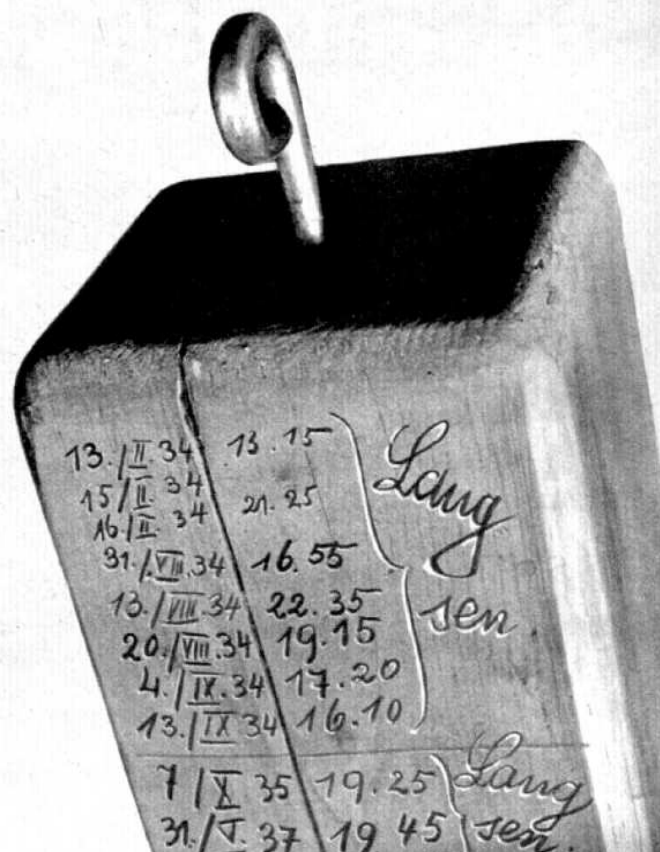 13./II. 34 13.15
15/II. 34 21.25
16./II. 34
31./VIII.34 16.55
13./VIII.34 22.35
20./VIII.34 19.15
4./IX.34 17.20
13./IX 34 16.10
Lang
sen.
7/X 35 19.25
31./V. 37 19 45
Lang
sen.